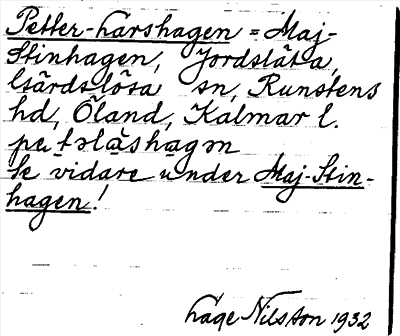 Petter-Larshagen = Maj-
Stinhagen, Jordslåta,
Gärdslösa sn, Runstens
hd, Öland, Kalmar l.
Se vidare under Maj-Stin-
hagen!
Lage Nilsson 1932